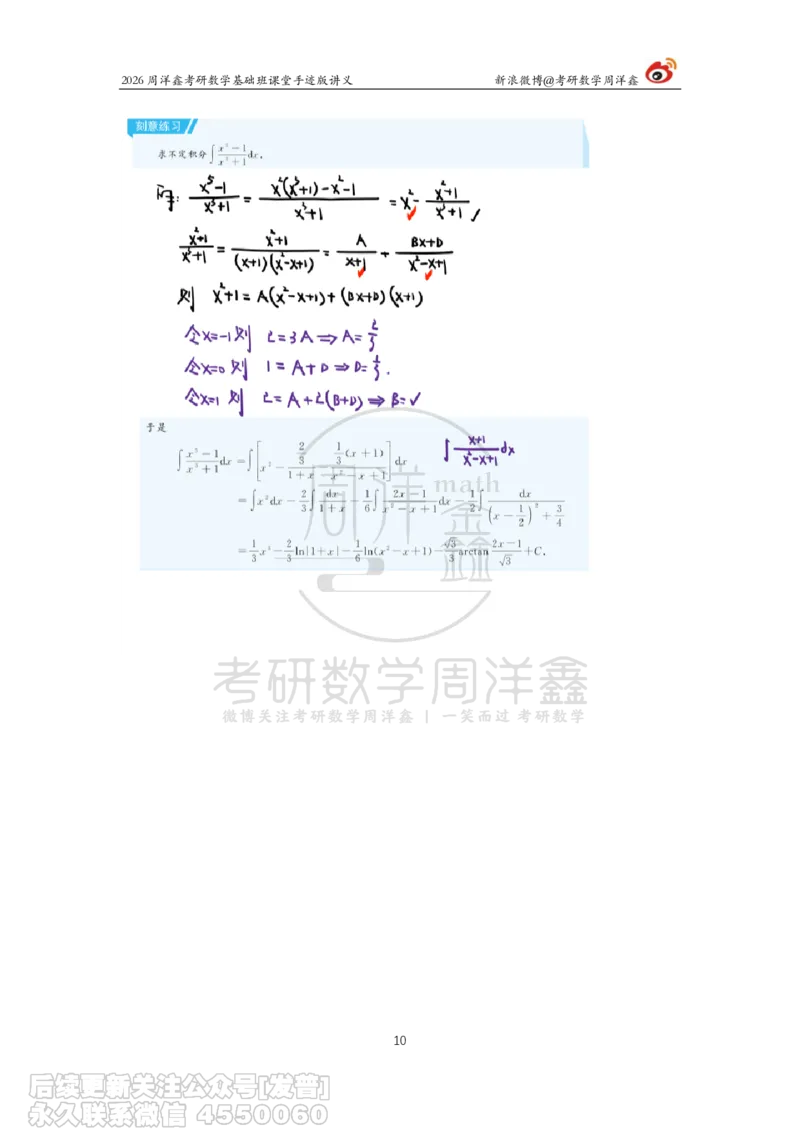 2026 周洋鑫考研数学基础班课堂手迹版讲义 新浪微博@考研数学周洋鑫
刻意练习
求不定积分∫(x⁵−1)/(x³+1)dx.
解: (x⁵−1)/(x³+1) = (x²(x³+1)−x²−1)/(x³+1) = x² − (x²+1)/(x³+1) ✓
(x²+1)/(x³+1) = (x²+1)/((x+1)(x²−x+1)) = A/(x+1) + (Bx+D)/(x²−x+1)
则 x²+1 = A(x²−x+1)+(Bx+D)(x+1)
令x=−1则 2=3A ⇒ A=2/3
令x=0则 1=A+D ⇒ D=1/3.
令x=1则 2=A+2(B+D) ⇒ B=✓
于是
∫(x+1)/(x²−x+1)dx
∫(x⁵−1)/(x³+1)dx = ∫[x² − (2/3)/(1+x) − (1/3(x+1))/(x²−x+1)]dx
= ∫x²dx − 2/3∫dx/(1+x) − 1/6∫(2x−1)/(x²−x+1)dx − 1/2∫dx/((x−1/2)²+3/4)
= 1/3x³ − 2/3ln|1+x| − 1/6ln(x²−x+1) − √3/3arctan(2x−1)/√3 + C.
周洋鑫 math
考研数学周洋鑫
微博关注考研数学周洋鑫 | 一笑而过 考研数学
10
后续更新关注公众号[发普]
永久联系微信 4550060